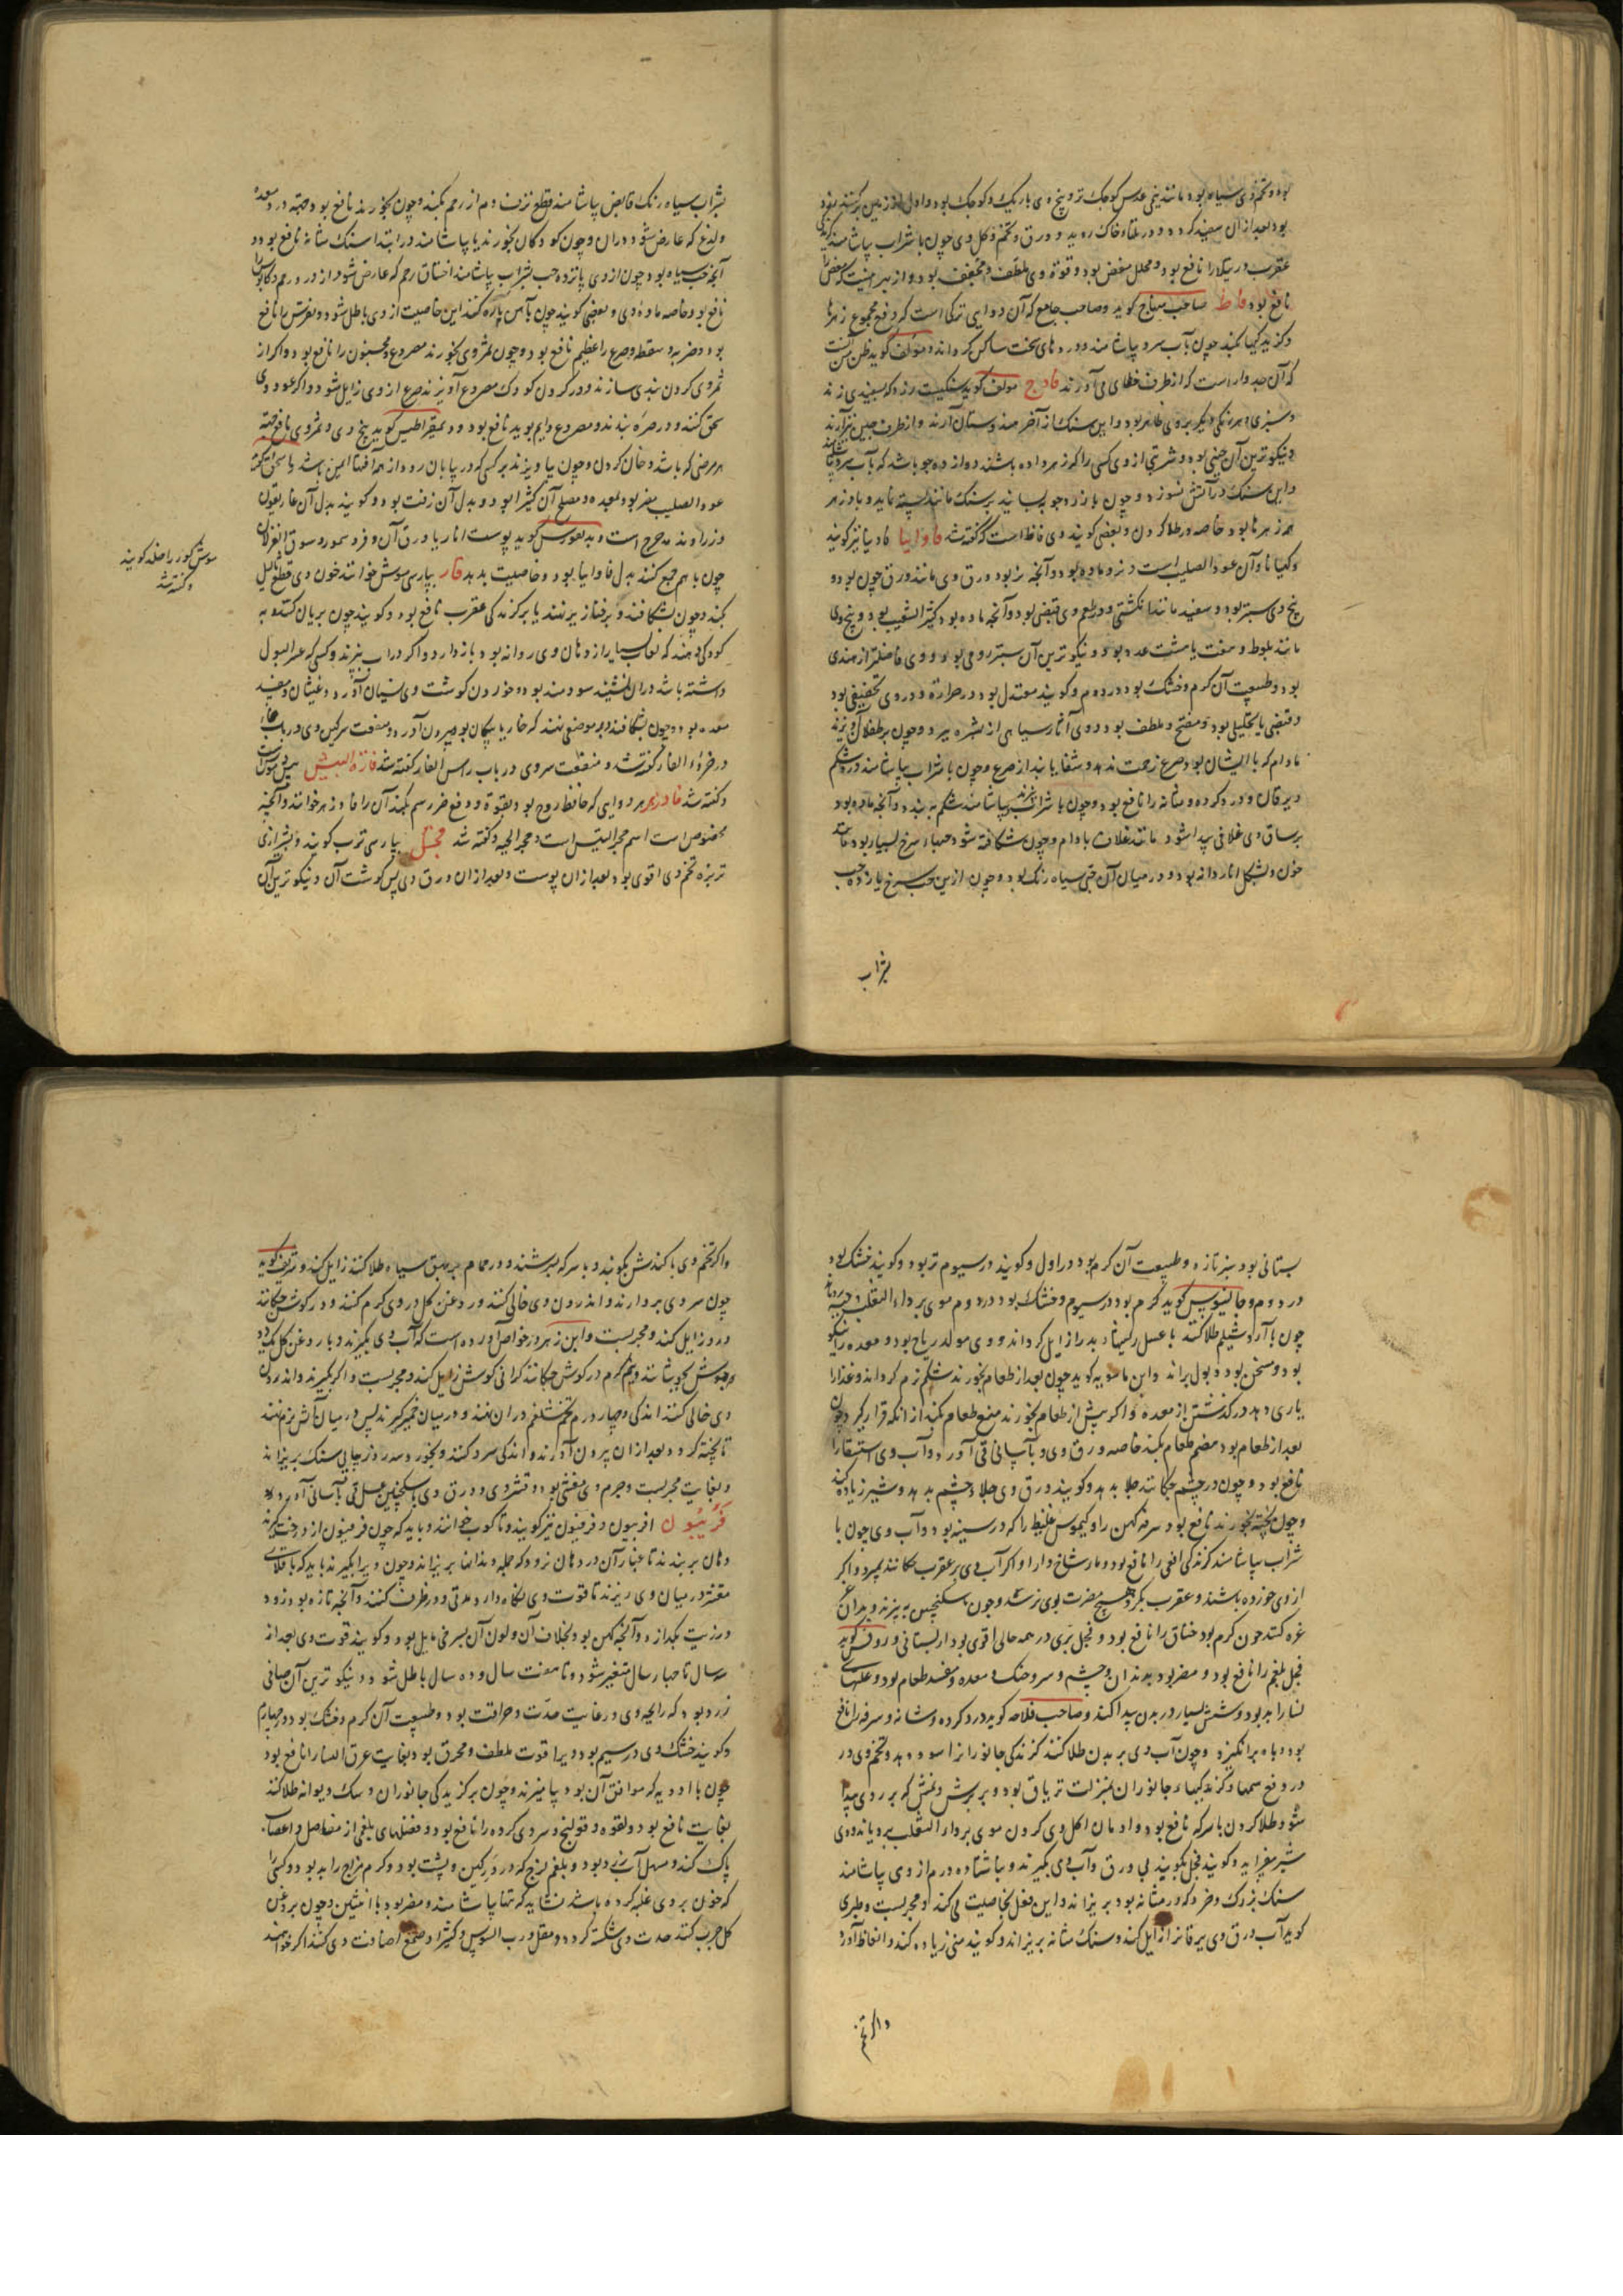 بود و تخم وی سیاه بود مانند نیم عدس کوچک تر و بیخ وی باریک و کوچک بود و اول از زمین برکنند
بود بعد از آن سفید کردد و در تلها و خاک روید و ورق و تخم و کل وی چون با شراب بیاشامند کزیدگی
عقرب و رتیلا را نافع بود و محلل مغص بود و قوة وی ملطف و مجفف بود و از بهر اینست که مغص را
نافع بود فاط صاحب منهاج کوید و صاحب جامع که آن دوایی ترکی است که دفع مجموع زهرها
و کزیدکیها بکند چون بآب سرد بیاشامند و دردهای سخت ساکن کرداند و مؤلف کوید ظن من آنست
که آن جدوار است که از طرف خطای می آورند فادج مولف کوید سنکیست زرد که بسفیدی زند
و سبزی و هر رنکی دیکر بر وی ظاهر بود و این سنک از آخر هندوستان آرند و از طرف چین نیز آرند
و نیکوترین آن چینی بود و شربتی از وی کسی را که زهر داده باشند دوازده جو باشد که بآب سرد بیاشامند
و این سنک در آتش نسوزد و چون با زرد جو بسایند بر سنک مانند بسته نماید و پادزهر
همه زهرها بود خاصه در طلا کردن و بعضی کویند وی فاط است که کفته شد فاوانیا فادنیا نیز کویند
و کهیانا و آن عود الصلیب است و نر و ماده بود و آنچه نر بود ورق وی مانند ورق جون بود و
بیخ وی سبتر بود و سفید مانند انکشتی و در طعم وی قبضی بود و آنچه ماده بود کثیر الشعب بود و بیخ وی
مانند بلوط و هفت یا هشت عدد بود و نیکوترین آن سبتر رومی بود و وی فاضلتر از هندی
بود و طبیعت آن کرم و خشک بود در دوم و کویند معتدل بود در حرارة و در وی تجفیفی بود
و قبضی با تحلیلی بود و مفتح و ملطف بود و وی آثار سیاهی از بشره ببرد و چون بر طفلان آویزند
مادام که با ایشان بود صرع زحمت ندهد و شفا یابند از صرع و چون با شراب بیاشامند درد شکم
و یرقان و درد کرده و مثانه را نافع بود و چون با شراب بپزند و بیاشامند شکم ببندد و آنچه ماده بود
بر ساق وی غلافی پیدا شود مانند غلاف بادام و چون شکافته شود حبهاء سرخ بسیار بود مانند
خون و بشکل انار دانه بود و در میان آن حبی سیاه رنک بود و چون از این حب سرخ یازده حب
بشراب
بشراب سیاه رنک قابض بیاشامند قطع نزف دم از رحم بکند و چون بخورند نافع بود جهة درد معده
و لذع که عارض شود در آن و چون کودکان بخورند یا بیاشامند در ابتدا سنک مثانه نافع بود و
آنچه حب سیاه بود چون از وی پانزده حب بشراب بیاشامند اختناق رحم که عارض شود از درد رحم و کابوس را
نافع بود خاصه ماده وی و بعضی کویند چون بآهن پاره کنند این خاصیت از وی باطل شود و نقرس را نافع
بود و ضربه و سقطه و صرع را عظیم نافع بود و چون ثمر وی بخورند مصروع و مجنون را نافع بود و اکر از
ثمر وی کردن بندی سازند و در کردن کودک مصروع آویزند صرع از وی زایل شود و اکر عود وی
سحق کنند و در صره بندند و مصروع دایم بوید نافع بود و دیمقراطیس کوید بیخ وی و ثمر وی نافع جهة
هر مرضی که باشد و خان کردن و چون بیاویزند بر کسی که در بیابان رود از همه آفتها ایمن باشد
عود الصلیب مضر بود بمعده و مصلح آن کثیرا بود و بدل آن زفت بود و کویند بدل آن غاریقون
و زراوند مدحرج است و بدیغورس کوید پوست انار یا ورق آن و فرو سمور و سوق الغزلان
چون با هم جمع کنند بدل فاوانیا بود و خاصیت بدهد فار بپارسی موش خوانند خون وی قطع ثالیل
بکند و چون بشکافند و بر فناز برنهند یا بر کزندکی عقرب نافع بود و کویند چون بریان کنند و به
کودکی دهند که لعاب بسیار از دهان وی روانه بود باز دارد و اکر در آب بپزند و کسی که عسر البول
داشته باشد در آن نشیند سودمند بود و خوردن کوشت وی نسیان آورد و غثیان و مفسد
معده بود و چون بشکافند و بر موضعی نهند که خار یا پیکان بود بیرون آورد و منفعت سرکین وی در باب خاء
در خرؤ الفار کفته شد و منفعت سر وی در باب راس الفار کفته شد فارة البیش بیش موش است
و کفته شد فادزهر هر دوایی که حافظ روح بود بقوة و دفع ضرر سم بکند آن را فادزهر خوانند و آنچه
مخصوص است اسم حجر التیس است و حجر الحیه و کفته شد فجل بپارسی ترب کویند و بشیرازی
تربزه تخم وی اقوی بود بعد از آن پوست و بعد از آن ورق وی پس کوشت آن و نیکوترین آن
موش کور را خلد کویند
و کفته شد
بستانی بود سبز تازه و طبیعت آن کرم بود در اول و کویند در سیوم تر بود و کویند خشک بود
در دوم و جالینوس کوید کرم بود در سیوم و خشک بود در دوم موی بر داء الثعلب برویاند
چون با آرد شیلم طلا کنند با عسل ریشهاء بد را زایل کرداند و وی مولد ریاح بود و معده را نیکو
بود و مسخن بود و بول براند و ابن ماسویه کوید چون بعد از طعام بخورند شکم نرم کرداند و غذا را
یاری دهد در کذشتن از معده و اکر پیش از طعام بخورند منع طعام بکند از آنکه قرار کیرد و چون
بعد از طعام بود هضم طعام بکند خاصه ورق وی و بآسانی قی آورد و آب وی استسقا را
نافع بود و چون در چشم چکانند جلا بدهد و کویند ورق وی جلاء چشم بدهد و شیر زیاده کند
و چون پخته بخورند نافع بود سرفه کهن را و کیموس غلیظ را که در سینه بود و آب وی چون با
شراب بیاشامند کزندکی افعی را نافع بود و مار شاخ دار را و اکر آب وی بر عقرب چکانند بمیرد و اکر
از وی خورده باشند و عقرب بکزد هیچ مضرت بوی نرسد و چون بسکنجبین بپزند و بدان
غرغره کنند چون کرم بود خناق را نافع بود و فجل بری در همه حالی اقوی بود از بستانی و روفس کوید
فجل بلغم را نافع بود و مضر بود بدندان و چشم و سر و حنک و معده و مفسد طعام بود و علتهای
نسا را بد بود و شپش بسیار در بدن پیدا کند و صاحب فلاحه کوید درد کرده و مثانه و سرفه را نافع
بود و باه برانکیزد و چون آب وی بر بدن طلا کنند کزندکی جانوران را سود دهد و تخم وی در
در دفع سمها و کزندکیهاء جانوران بمنزلت تریاق بود و بر برش و نمش که بر روی پیدا
شود طلا کردن با سرکه نافع بود و ادمان اکل وی کردن موی بر داء الثعلب برویاند و وی
شیر بیفزاید و کویند فجل بکویند بی ورق و آب وی بکیرند و ناشتا ده درم از وی بیاشامند
سنک بزرک و خرد که در مثانه بود بریزاند و این فعل بخاصیت می کند و مجربست و طبری
کوید آب ورق وی یرقان را زایل کند و سنک مثانه بریزاند و کویند منی زیاده کند و انعاظ آورد
و اکر تخم
و اکر تخم وی با کندش بکوبند و با سرکه بسرشند و در حمام بر بهق سیاه طلا کنند زایل کند و شریف کوید
چون سر وی بردارند و اندرون وی خالی کنند و روغن کل در وی کرم کنند و در کوش چکانند
درد زایل کند و مجربست و ابن زهر در خواص آورده است که آب وی بکیرند و با روغن کل
بجوشانند و نیم کرم در کوش چکانند کرانی کوش زایل کند و مجربست و اکر بکیرند و اندرون
وی خالی کنند اندکی و چهار درم تخم شلغم در آن نهند و در میان خمیر کیرند پس در میان آتش نرم نهند
تا پخته کردد بعد از آن بیرون آورند و اندکی سرد کنند و بخورد سه روز پیاپی سنک بریزاند
و بغایت مجربست و جرم وی مغثی بود و قشر وی و ورق وی با سکنجبین عسلی قی بآسانی آورد
فربیون افربیون و فرفیون نیز کویند و تاکوب خوانند و باید که چون فرفیون از درخت کیرند
دهان بربندند تا غبار آن در دهان نرود که جمله دندانها بریزاند و چون ویرا بکیرند باید که باقلای
مقشر در میان وی ریزند تا قوت وی نکاه دارد مدتی و در ظرف کنند و آنچه تازه بود زود
در زیت بکدازد و آنچه کهن بود بخلاف آن و لون آن بسرخی مایل بود و کویند قوت وی بعد از
سه سال تا چهار سال متغیر شود و تا هفت سال و ده سال باطل شود و نیکوترین آن صافی
زرد بود که رایحه وی در غایت حدت و حرافت بود و طبیعت آن کرم و خشک بود در چهارم
و کویند خشک وی در سیم بود و ویرا قوت ملطف و محرق بود و بغایت عرق النسا را نافع بود
چون با ادویه که موافق آن بود بیامیزند و چون بر کزیدکی جانوران و سک دیوانه طلا کنند
بغایت نافع بود و لقوه و قولنج و سردی کرده را نافع بود و فضلهای بلغمی از مفاصل و اعصاب
پاک کند و مسهل آب زرد بود و بلغم لزج که در ورکین و پشت بود و کرم مزاج را بد بود و کسی را
که خون بر وی غلبه کرده باشد نشاید که تنها بیاشامند و مضر بود با انثیین و چون بروغن
کل چرب کنند حدت وی شکسته کردد و مقل و رب السوس و کثیرا و صمغ اضافت وی کنند اکر خواهند